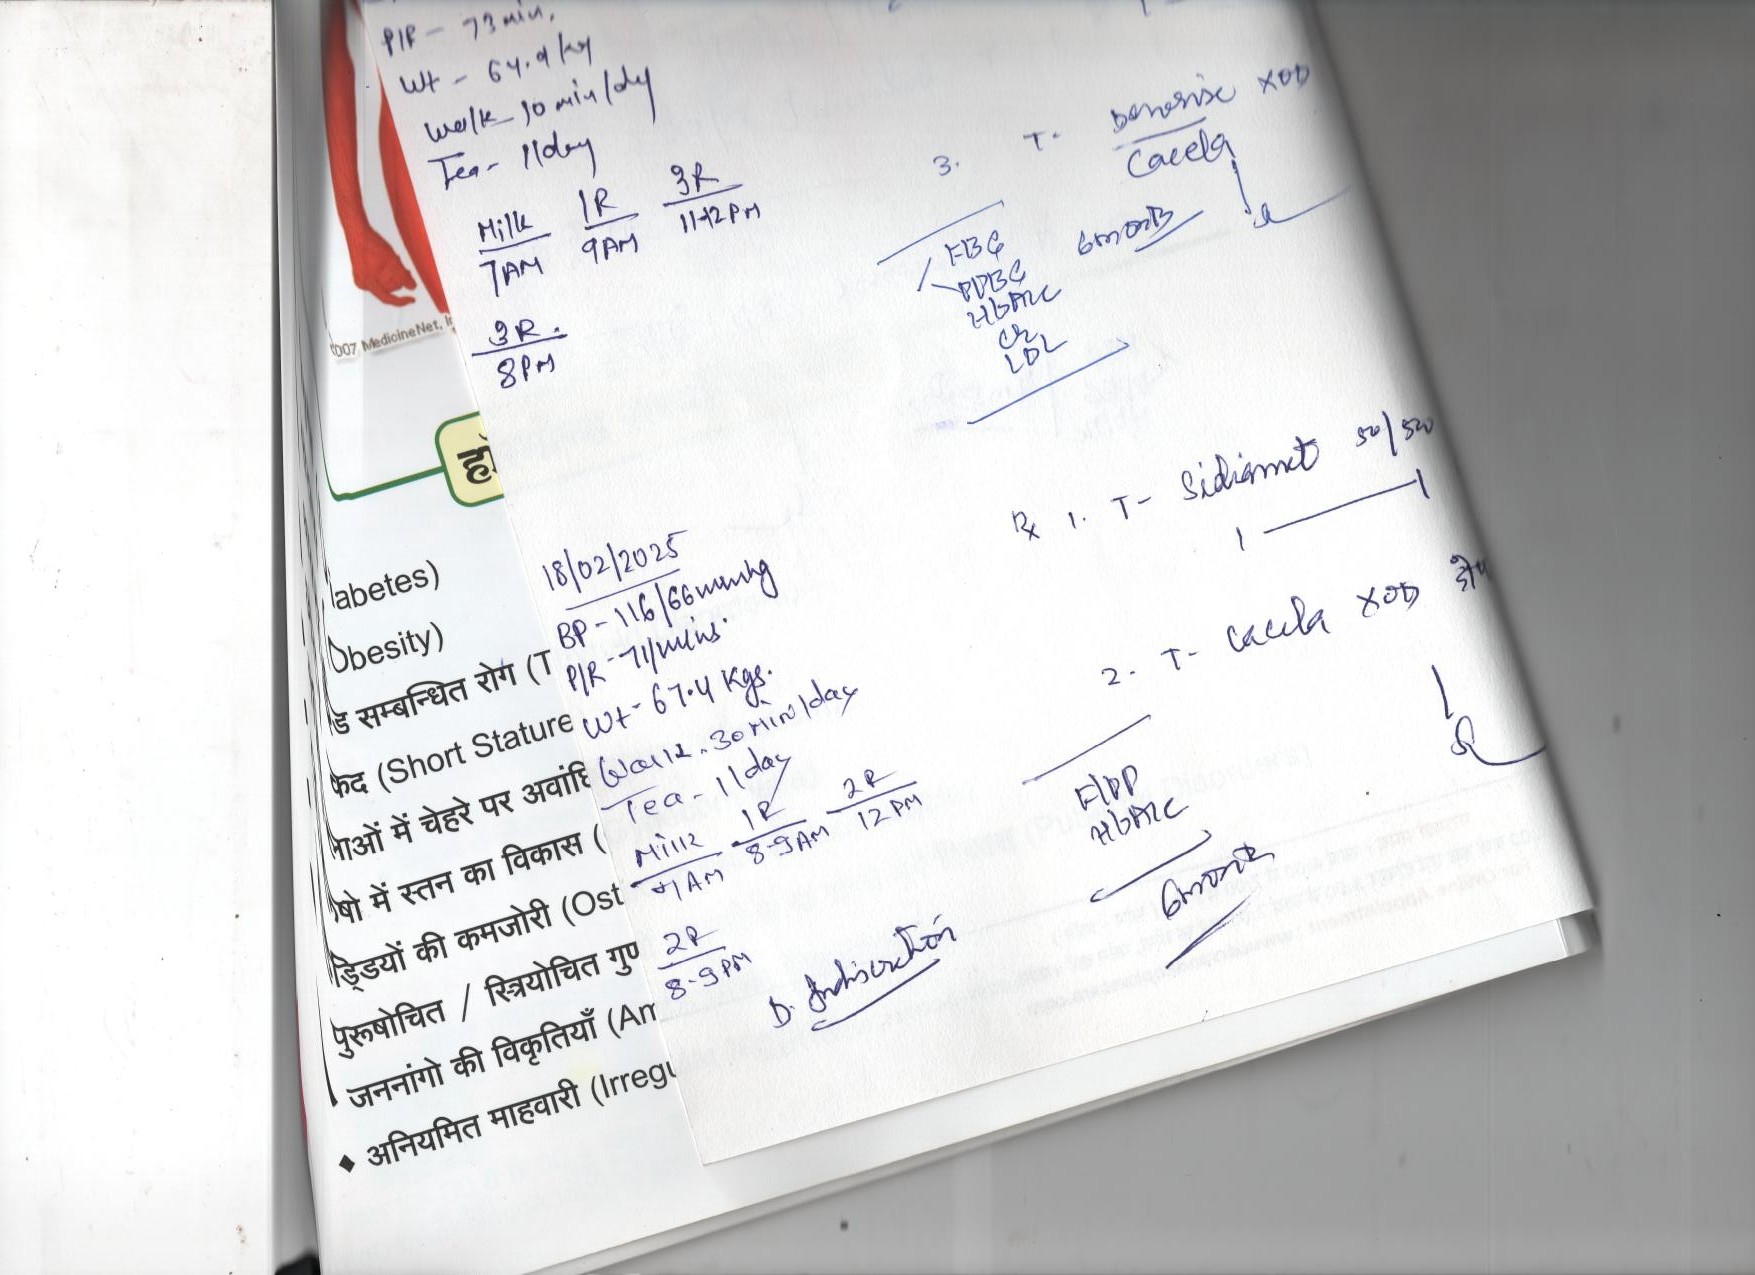 P/R - 73 min,
Wt - 64.9 kg
Walk 30 min/day
Tea - 1/day
Milk
7AM
1R
9AM
3R
11-12 PM
3R.
8PM
3. T- XOD
Cacela
FBG
PPBG
HbA1c
Cr
LDL
6 month
18/02/2025
BP - 116/66 mmHg
P/R - 71/mins.
Wt - 67.4 Kgs.
Walk - 30 min/day
Tea - 1/day
Milk
7AM
1R
8-9AM
2R
12 PM
2R
8-9 PM
D. Indiscretion
Rx 1. T- 50/500
1 — 1
2. T- Cacela XOD
F/PP
HbA1c
6 month
2007 MedicineNet, I
हो
iabetes)
Obesity)
ड सम्बन्धित रोग (T
कद (Short Stature
लाओं में चेहरे पर अवांछि
षो में स्तन का विकास (
ड्डियों की कमजोरी (Ost
पुरूषोचित / स्त्रियोचित गुण
जननांगो की विकृतियाँ (Am
◆ अनियमित माहवारी (Irregu